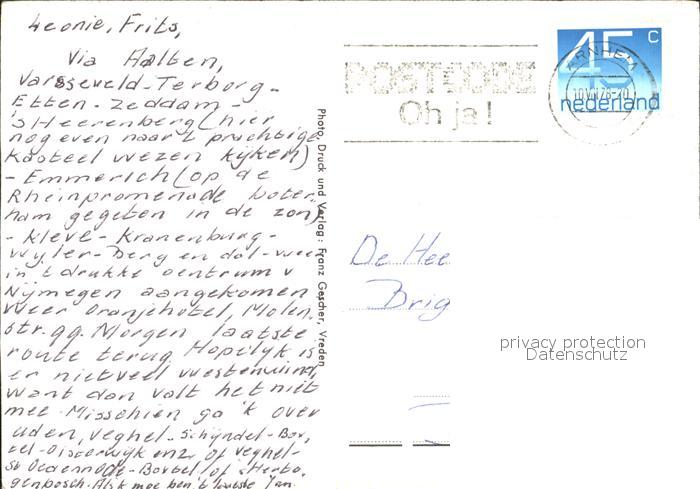 Leonie, Frits,
Via Aalten,
Varsseveld-Terborg-
Etten-Zeddam-
'S Heerenberg (hier
nog even naar 't prachtige
kasteel wezen kijken)
- Emmerich (op de
Rheinpromenade boter
ham gegeten in de zon)
- Kleve- Kranenburg-
Wyler-Berg en dal-weer
in 't drukke centrum v
Nijmegen aangekomen
Weer Oranjehotel, Molen
str. 99. Morgen laatste
route terug Hopelijk is
er niet veel westenwind,
want dan valt het niet
mee. Misschien ga 'k over
Uden, Veghel-Schijndel-Box,
tel-Oisterwijk enz of Veghel-
St Oedenrode-Boxtel of sHerto
genbosch. Als k moe ben 't laatste Jan.
Photo, Druck und Verlag: Franz Gescher, Vreden
POSTCODE
Oh ja!
ARNHEM
45 C
nederland
De Hee
Brig
privacy protection
Datenschutz